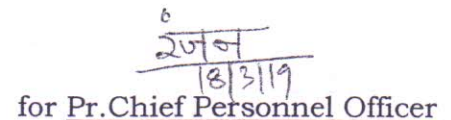 रंजन
18/3/19
for Pr.Chief Personnel Officer